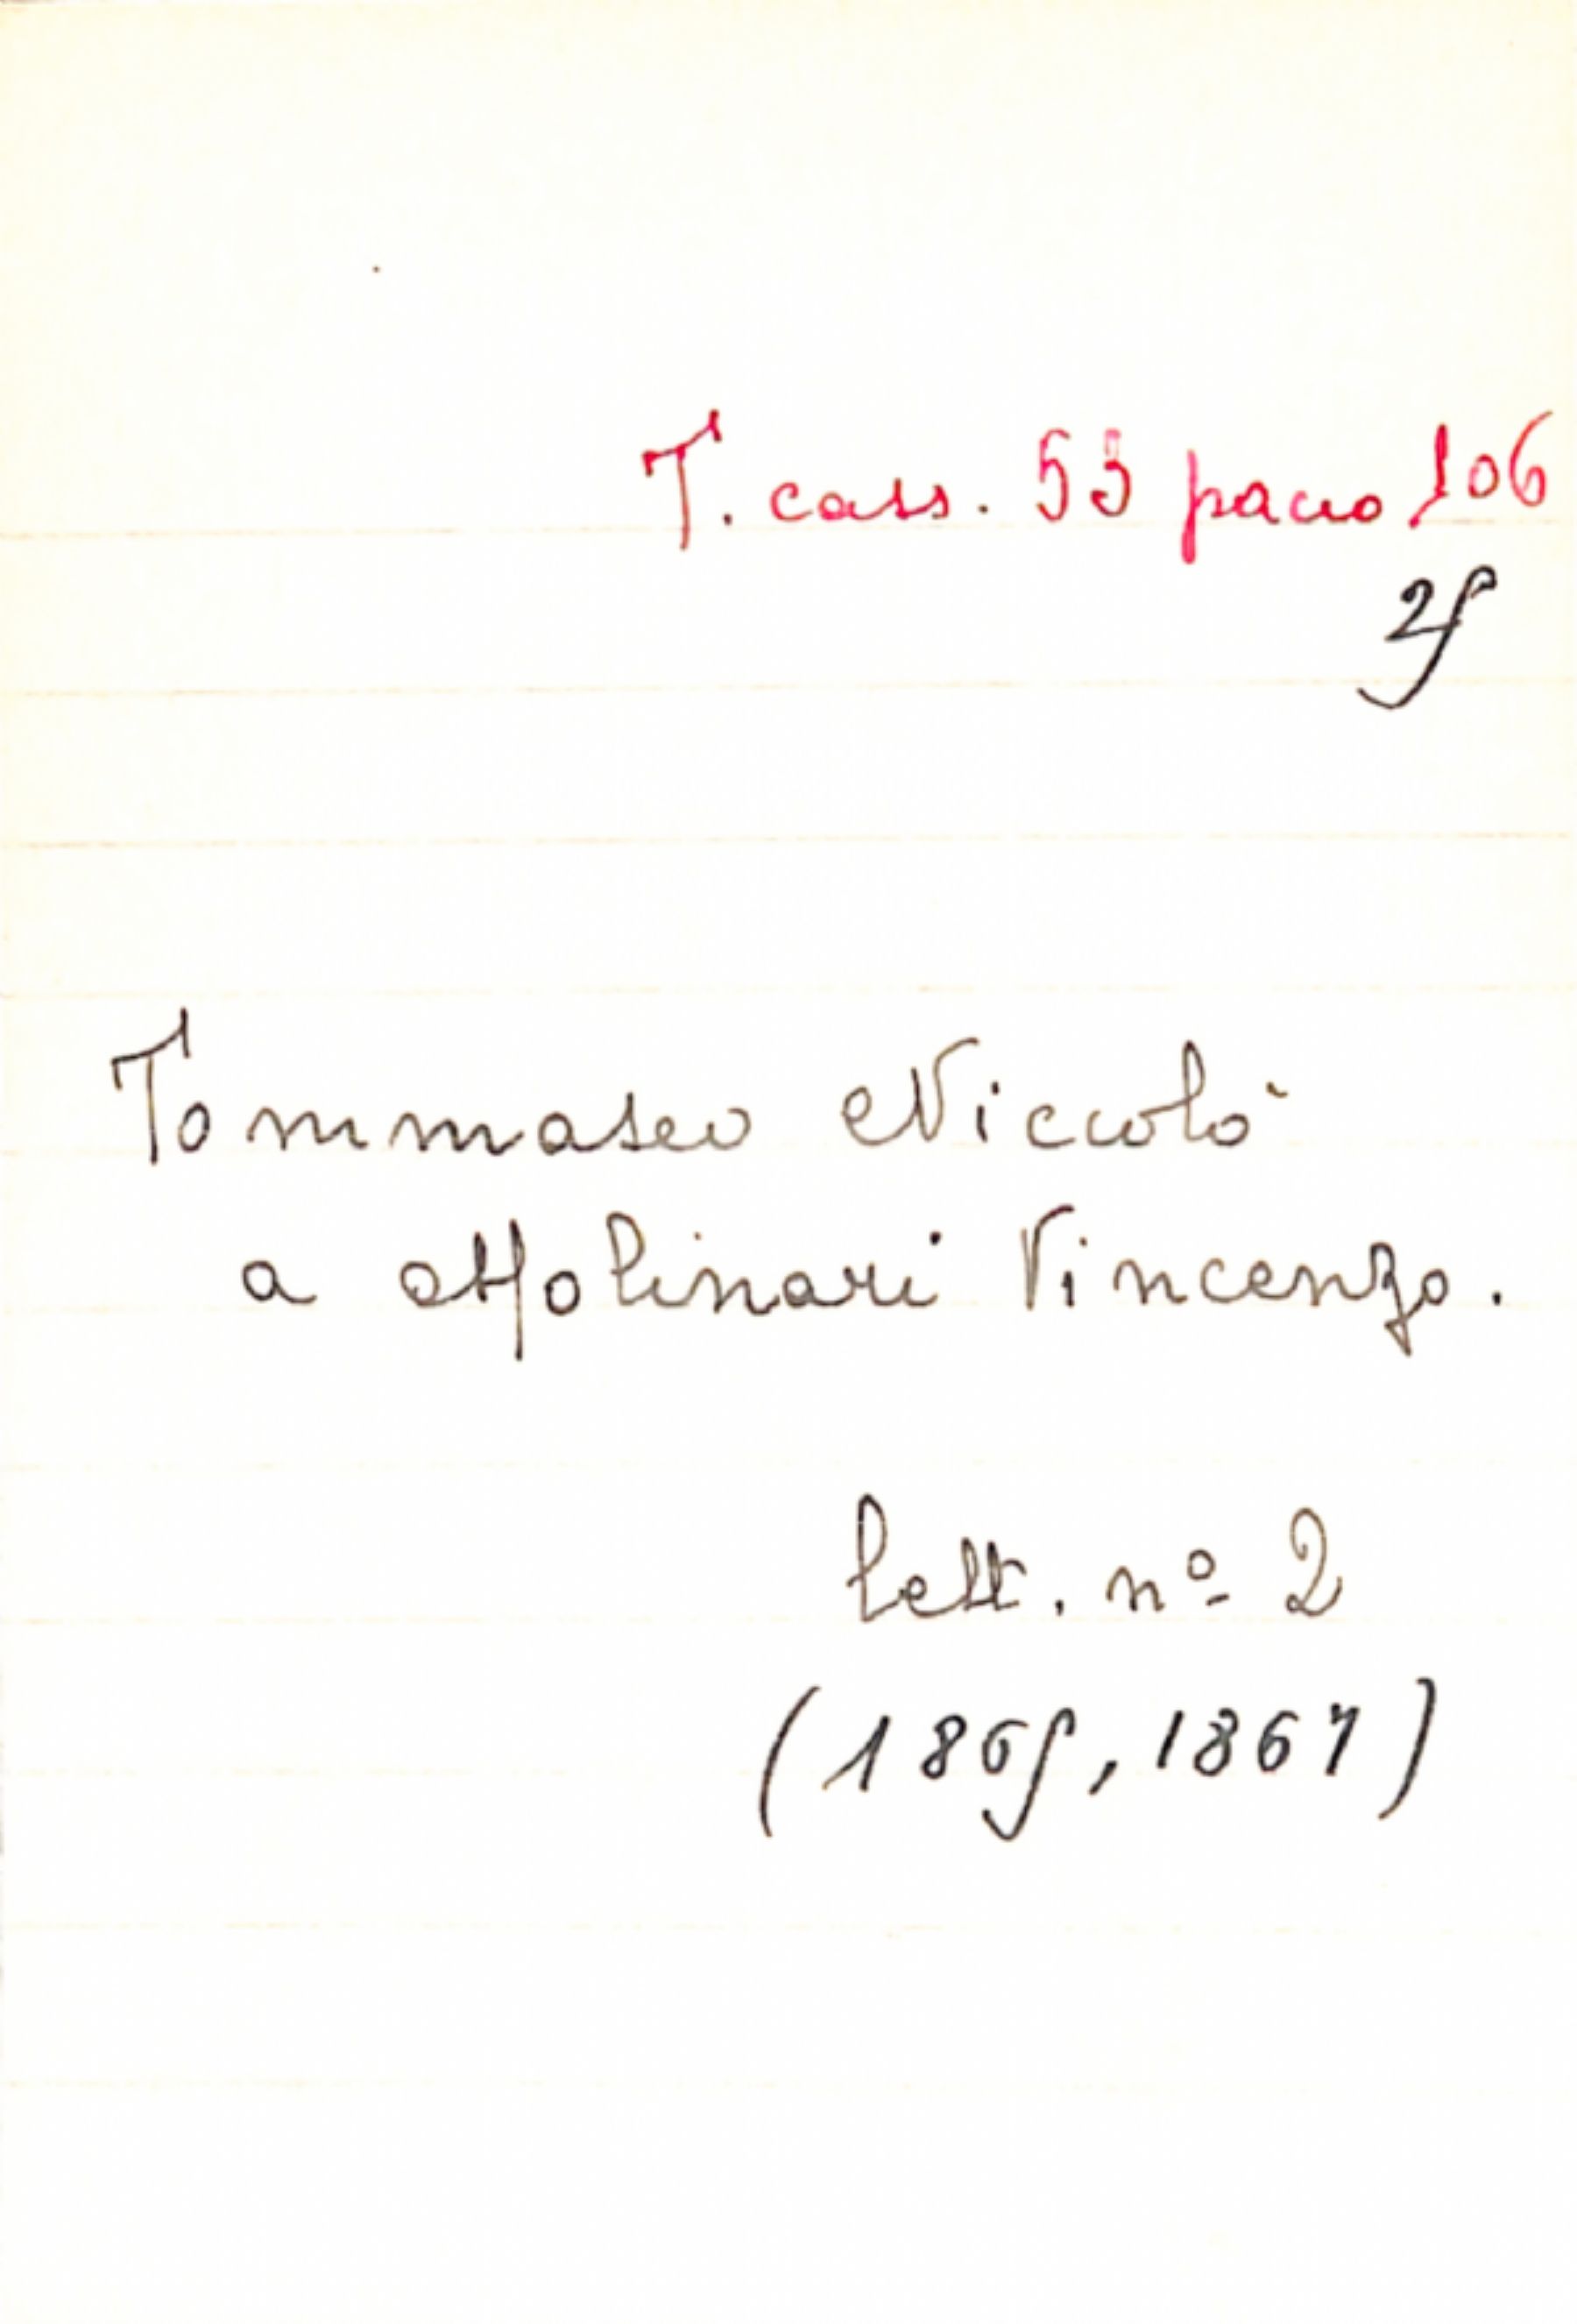 T. cass. 53 pacco 106
25
Tommaseo Niccolò
a Molinari Vincenzo.
lett. nº 2
(1865, 1867)